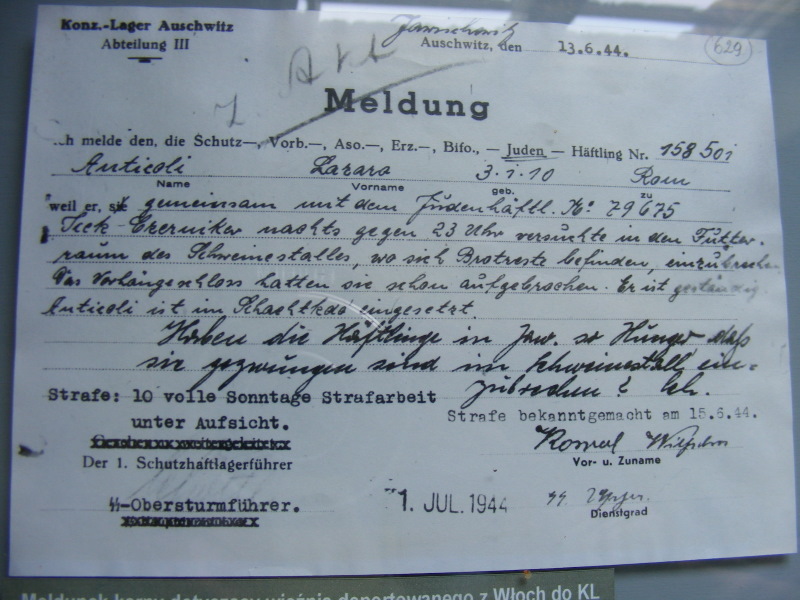 Konz.-Lager Auschwitz
Abteilung III
Jawischowitz
Auschwitz, den 13.6.44.
629
z. Akt
Meldung
Ich melde den, die Schutz—, Vorb.—, Aso.—, Erz.—, Bifo., — Juden — Häftling Nr. 158 501
Anticoli Lazaro 3.1.10 Rom
Name Vorname geb. zu
weil er, sie gemeinsam mit dem Judenhäftl. No: 79675
nachts gegen 23 Uhr versuchte in den Futter-
raum des Schweinestalles, wo sich Brotreste befinden, einzubrechen
Das Vorhängeschloss hatten sie schon aufgebrochen. Er ist geständig.
Anticoli ist im Schachtkdo eingesetzt.
Haben die Häftlinge in Jaw. so Hunger daß
sie gezwungen sind im Schweinestall ein-
zubrechen?
Strafe: 10 volle Sonntage Strafarbeit
unter Aufsicht.
Strafe bekanntgemacht am 15.6.44.
Der 1. Schutzhaftlagerführer
Vor- u. Zuname
SS-Obersturmführer.
1. JUL. 1944
SS
Dienstgrad
Meldunek karny dotyczący więźnia deportowanego z Włoch do KL